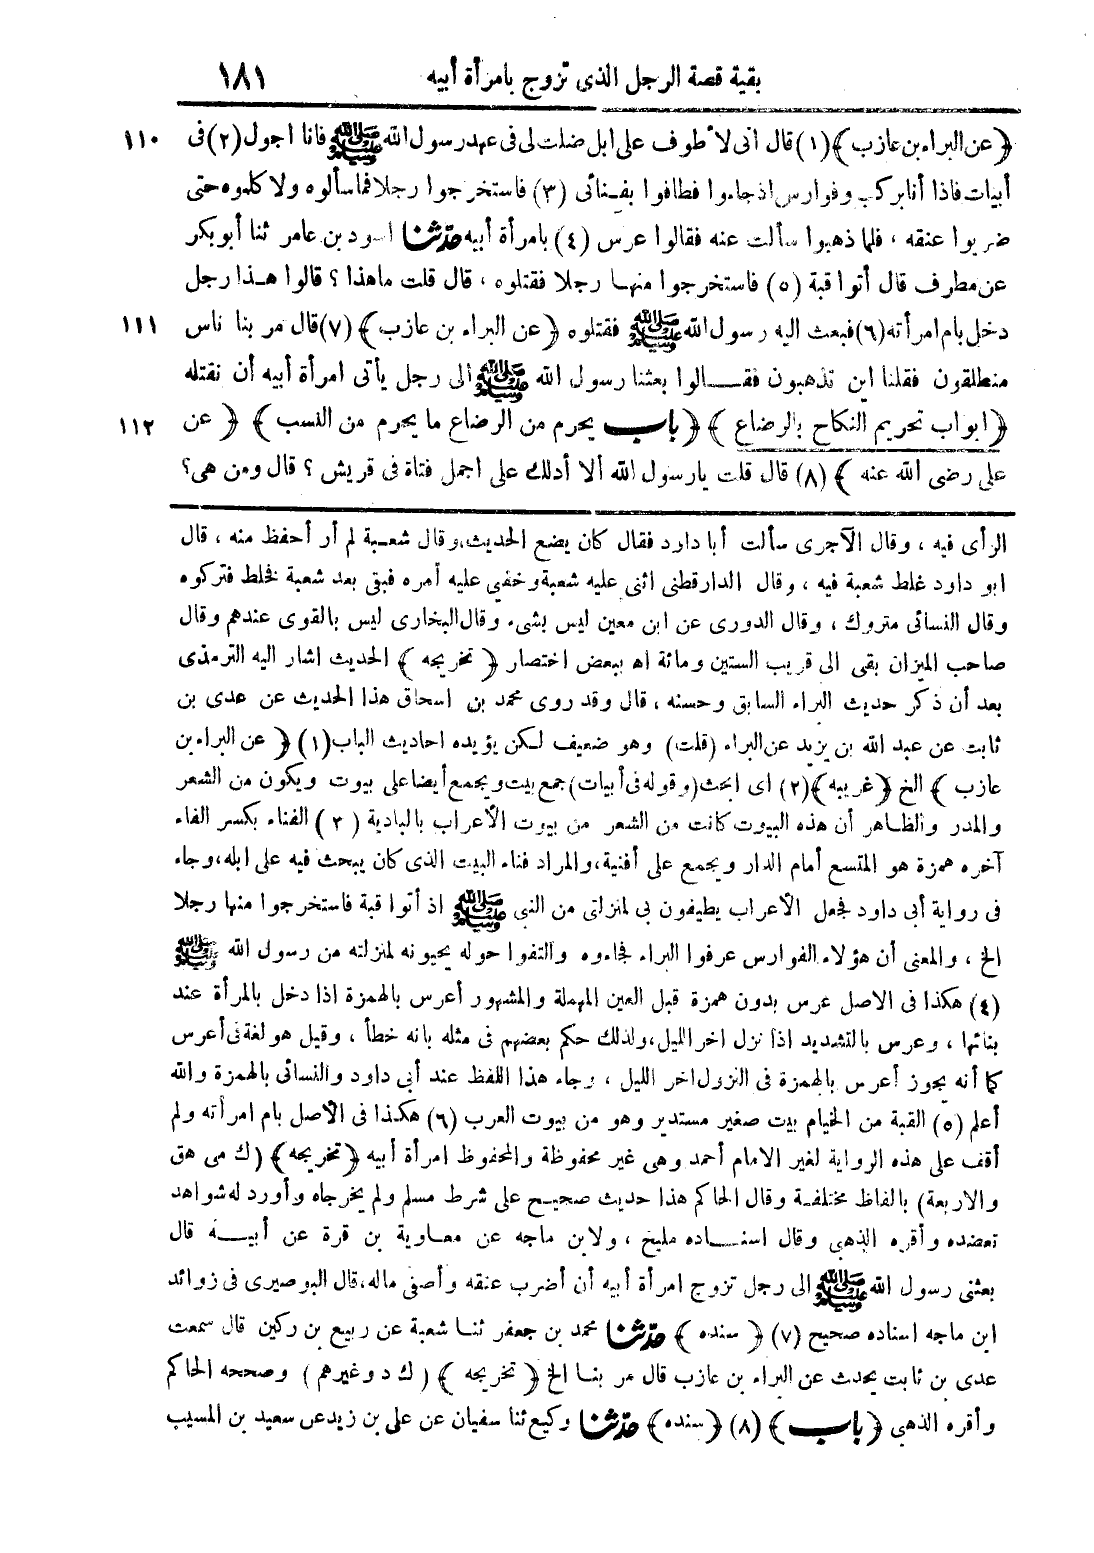 بقية قصة الرجل الذى تزوج بامرأة أبيه ١٨١
﴿ عن البراء بن عازب ﴾ (١) قال انى لأطوف على ابل ضلت لى فى عهد رسول الله ﷺ فانا اجول (٢) فى ١١٠
أبيات فاذا أنا بركب وفوارس اذ جاءوا فطافوا بفنائى (٣) فاستخرجوا رجلا فما سألوه ولا كلموه حتى
ضربوا عنقه ، فلما ذهبوا سألت عنه فقالوا عرس (٤) بامرأة أبيه حدّثنا اسود بن عامر ثنا أبو بكر
عن مطرف قال أتوا قبة (٥) فاستخرجوا منها رجلا فقتلوه ، قال قلت ماهذا ؟ قالوا هذا رجل
دخل بام امرأته (٦) فبعث اليه رسول الله ﷺ فقتلوه ﴿ عن البراء بن عازب ﴾ (٧) قال مر بنا ناس ١١١
منطلقون فقلنا اين تذهبون فقالوا بعثنا رسول الله ﷺ الى رجل يأتى امرأة أبيه أن نقتله
﴿ ابواب تحريم النكاح بالرضاع ﴾ ﴿ باب يحرم من الرضاع ما يحرم من النسب ﴾ ﴿ عن ١١٢
على رضى الله عنه ﴾ (٨) قال قلت يارسول الله ألا أدلك على اجمل فتاة فى قريش ؟ قال ومن هى ؟
الرأى فيه ، وقال الآجرى سألت أبا داود فقال كان يضع الحديث، وقال شعبة لم أر أحفظ منه ، قال
ابو داود غلط شعبة فيه ، وقال الدارقطنى اثنى عليه شعبة وخفى عليه أمره فبقى بعد شعبة فخلط فتركوه
وقال النسائى متروك ، وقال الدورى عن ابن معين ليس بشىء وقال البخارى ليس بالقوى عندهم وقال
صاحب الميزان بقى الى قريب الستين ومائة اه ببعض اختصار ﴿ تخريجه ﴾ الحديث اشار اليه الترمذى
بعد أن ذكر حديث البراء السابق وحسنه ، قال وقد روى محمد بن اسحاق هذا الحديث عن عدى بن
ثابت عن عبد الله بن يزيد عن البراء (قلت) وهو ضعيف لكن يؤيده احاديث الباب (١) ﴿ عن البراء بن
عازب ﴾ الخ ﴿ غريبه ﴾ (٢) اى ابحث (وقوله فى أبيات) جمع بيت ويجمع أيضا على بيوت ويكون من الشعر
والمدر والظاهر أن هذه البيوت كانت من الشعر من بيوت الأعراب بالبادية (٣) الفناء بكسر الفاء
آخره همزة هو المتسع أمام الدار ويجمع على أفنية، والمراد فناء البيت الذى كان يبحث فيه على ابله، وجاء
فى رواية أبى داود فجعل الأعراب يطيفون بى لمنزلتى من النبى ﷺ اذ أتوا قبة فاستخرجوا منها رجلا
الخ ، والمعنى أن هؤلاء الفوارس عرفوا البراء فجاءوه والتفوا حوله يحيونه لمنزلته من رسول الله ﷺ
(٤) هكذا فى الاصل عرس بدون همزة قبل العين المهملة والمشهور أعرس بالهمزة اذا دخل بالمرأة عند
بنائها ، وعرس بالتشديد اذا نزل اخر الليل، ولذلك حكم بعضهم فى مثله بانه خطأ ، وقيل هو لغة فى أعرس
كما أنه يجوز أعرس بالهمزة فى النزول اخر الليل ، وجاء هذا اللفظ عند أبى داود والنسائى بالهمزة والله
أعلم (٥) القبة من الخيام بيت صغير مستدير وهو من بيوت العرب (٦) هكذا فى الاصل بام امرأته ولم
أقف على هذه الرواية لغير الامام أحمد وهى غير محفوظة والمحفوظ امرأة أبيه ﴿ تخريجه ﴾ (ك مى هق
والاربعة) بالفاظ مختلفة وقال الحاكم هذا حديث صحيح على شرط مسلم ولم يخرجاه وأورد له شواهد
تعضده وأقره الذهبى وقال اسناده مليح ، ولابن ماجه عن معاوية بن قرة عن أبيه قال
بعثنى رسول الله ﷺ الى رجل تزوج امرأة أبيه أن أضرب عنقه وأصفى ماله، قال البوصيرى فى زوائد
ابن ماجه اسناده صحيح (٧) ﴿ سنده ﴾ حدّثنا محمد بن جعفر ثنا شعبة عن ربيع بن ركين قال سمعت
عدى بن ثابت يحدث عن البراء بن عازب قال مر بنا الخ ﴿ تخريجه ﴾ (ك د وغيرهم) وصححه الحاكم
وأقره الذهبى ﴿ باب ﴾ (٨) ﴿ سنده ﴾ حدّثنا وكيع ثنا سفيان عن على بن زيد عن سعيد بن المسيب